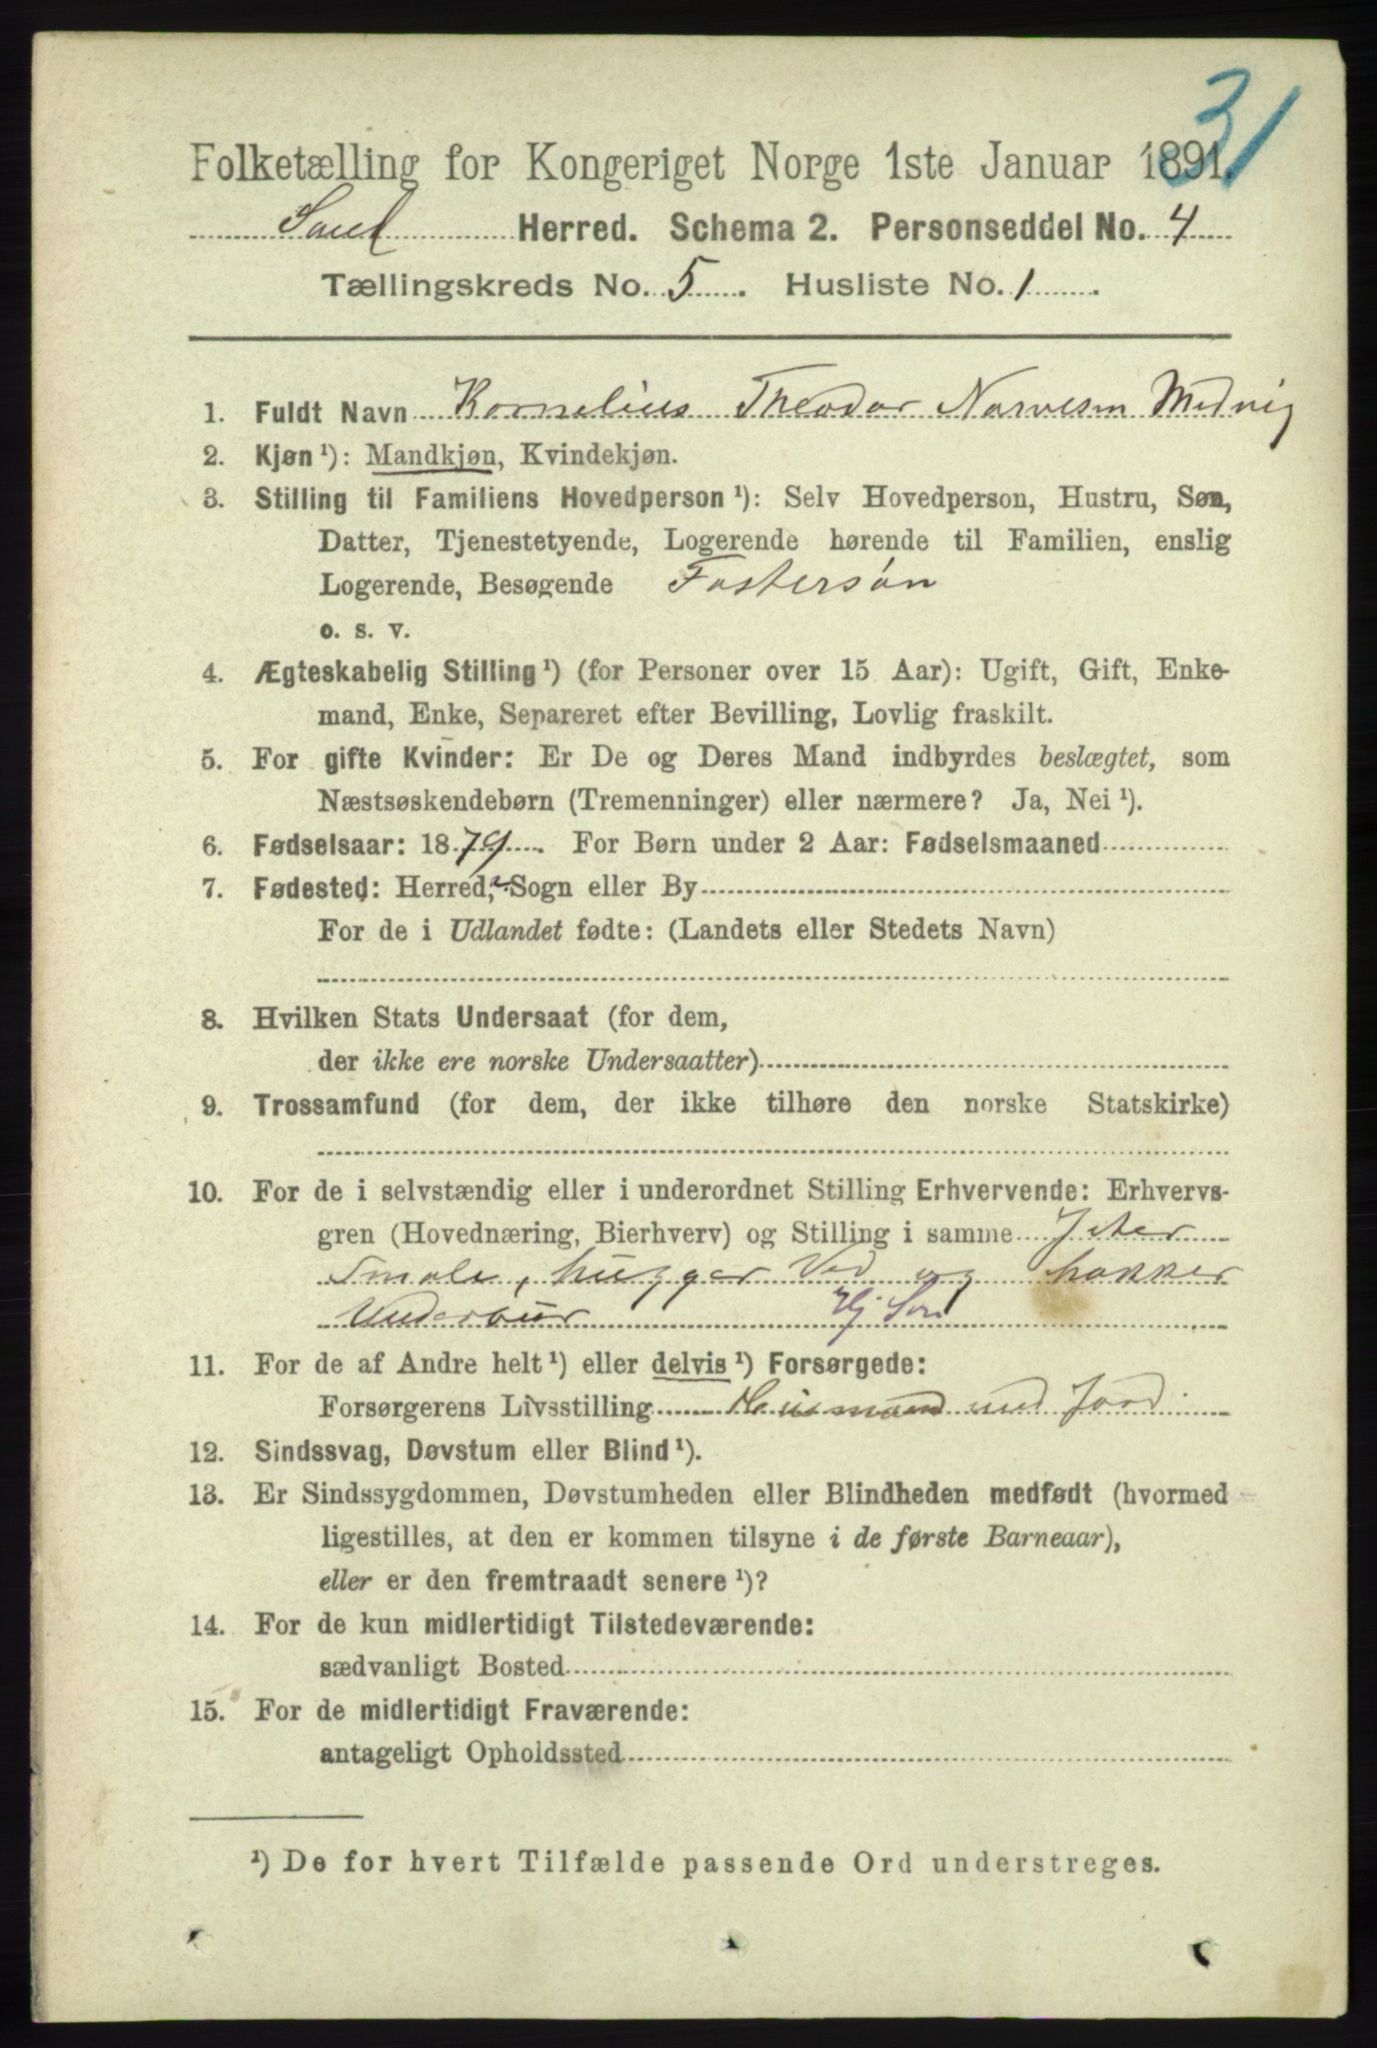 31
Folketælling for Kongeriget Norge 1ste Januar 1891.
Sand Herred. Schema 2. Personseddel No. 4
Tællingskreds No. 5. Husliste No. 1.
1. Fuldt Navn Kornelius Theodor Narvesen Medvig
2. Kjøn ¹): Mandkjøn, Kvindekjøn.
3. Stilling til Familiens Hovedperson ¹): Selv Hovedperson, Hustru, Søn,
Datter, Tjenestetyende, Logerende hørende til Familien, enslig
Logerende, Besøgende Fostersøn
o. s. v.
4. Ægteskabelig Stilling ¹) (for Personer over 15 Aar): Ugift, Gift, Enke-
mand, Enke, Separeret efter Bevilling, Lovlig fraskilt.
5. For gifte Kvinder: Er De og Deres Mand indbyrdes beslægtet, som
Næstsøskendebørn (Tremenninger) eller nærmere? Ja, Nei ¹).
6. Fødselsaar: 1879. For Børn under 2 Aar: Fødselsmaaned
7. Fødested: Herred, Sogn eller By
For de i Udlandet fødte: (Landets eller Stedets Navn)
8. Hvilken Stats Undersaat (for dem,
der ikke ere norske Undersaatter)
9. Trossamfund (for dem, der ikke tilhøre den norske Statskirke)
10. For de i selvstændig eller i underordnet Stilling Erhvervende: Erhvervs-
gren (Hovednæring, Bierhverv) og Stilling i samme Jeter
Smale, hugger Ved og hakker
Underbur Hj Søn
11. For de af Andre helt ¹) eller delvis ¹) Forsørgede:
Forsørgerens Livsstilling Husmand med Jord
12. Sindssvag, Døvstum eller Blind ¹).
13. Er Sindssygdommen, Døvstumheden eller Blindheden medfødt (hvormed
ligestilles, at den er kommen tilsyne i de første Barneaar),
eller er den fremtraadt senere ¹)?
14. For de kun midlertidigt Tilstedeværende:
sædvanligt Bosted
15. For de midlertidigt Fraværende:
antageligt Opholdssted
¹) De for hvert Tilfælde passende Ord understreges.